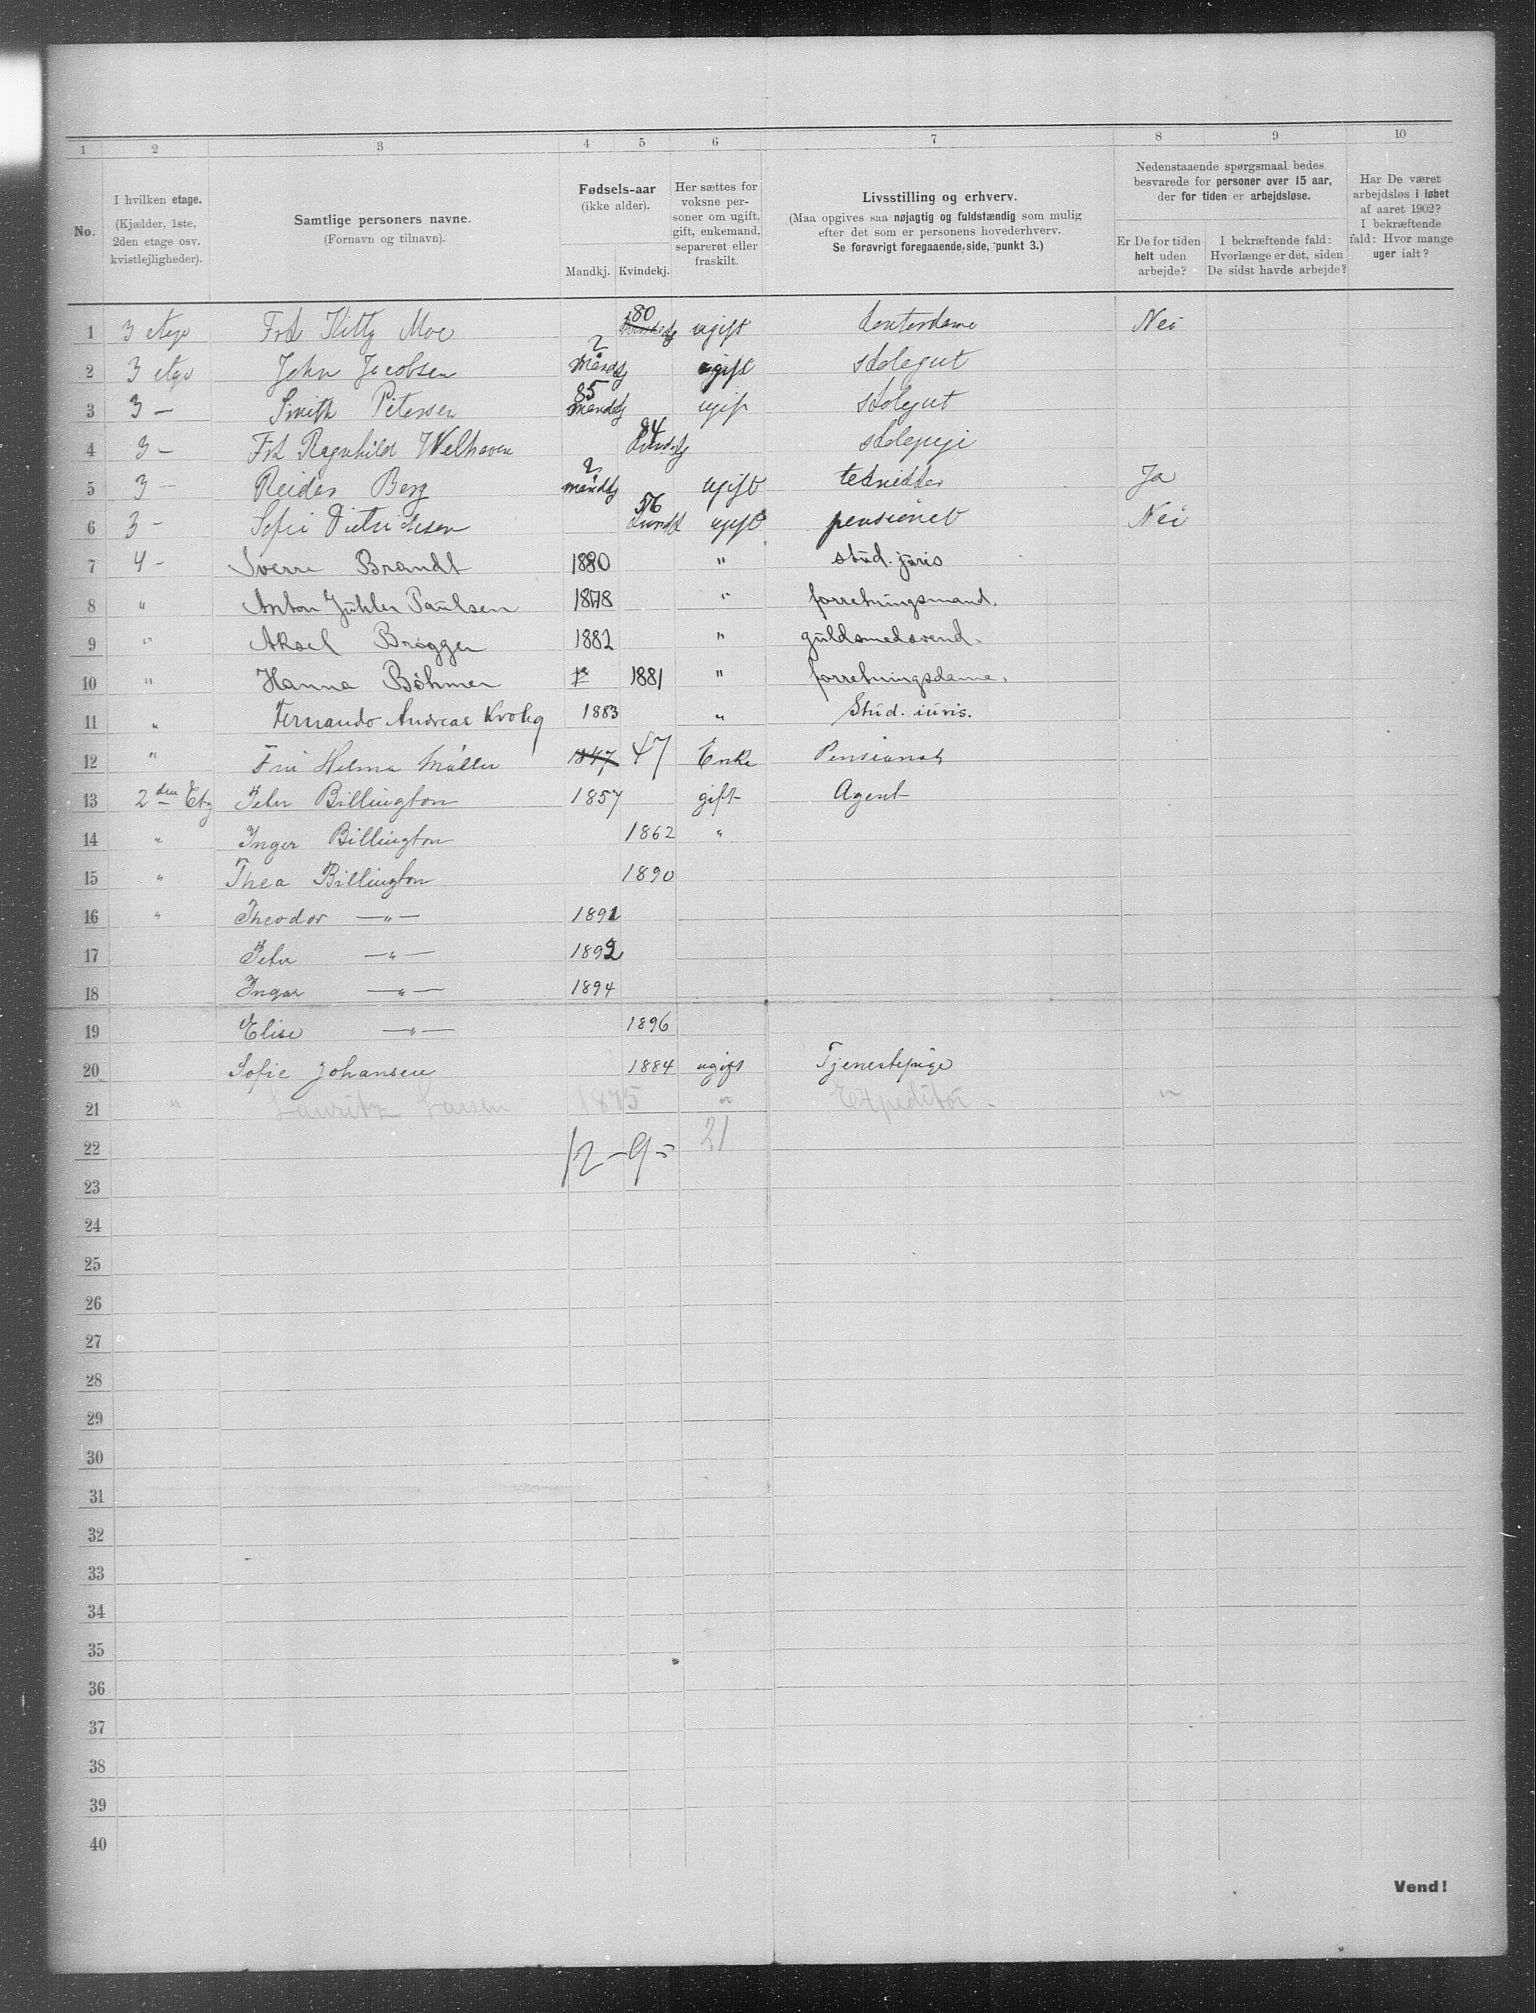 1 2 3 4 5 6 7 8 9 10
No.
I hvilken etage.
(Kjælder, 1ste,
2den etage osv.
kvistlejligheder).
Samtlige personers navne.
(Fornavn og tilnavn).
Fødsels-aar
(ikke alder).
Mandkj. Kvindekj.
Her sættes for
voksne per-
soner om ugift,
gift, enkemand,
separeret eller
fraskilt.
Livsstilling og erhverv.
(Maa opgives saa nøjagtig og fuldstændig som mulig
efter det som er personens hovederhverv.
Se forøvrigt foregaaende side, punkt 3.)
Nedenstaaende spørgsmaal bedes
besvarede for personer over 15 aar,
der for tiden er arbejdsløse.
Er De for tiden
helt uden
arbejde?
I bekræftende fald:
Hvorlænge er det, siden
De sidst havde arbejde?
Har De været
arbejdsløs i løbet
af aaret 1902?
I bekræftende
fald: Hvor mange
uger ialt?
1 3 etage Frk Kitty Moe 80 ugift kontordame Nei
2 3 etge John Jacobsen 2 Mandkj ugift skolegut
3 3 — Smith Petersen 85 Mandkj ugift skolegut
4 3 — Frk Ragnhild Welhaven 84 skolepige
5 3 — Reidar Berg 2 Mandkj ugift tekniker Ja
6 3 — Sofie Dietrichsen 56 ugift pensionet Nei
7 4 - Sverre Brandt 1880 " stud. juris
8 " Anton Juhler Paulsen 1878 " forretningsmand.
9 " Aksel Brøgger 1882 " guldsmedsvend.
10 " Hanna Bøhmer 1881 " forretningsdame.
11 " Fernando Andreas Krohg 1883 " Stud. iuris.
12 " Fru Helma Müller 1847 47 Enke Pensionat
13 2den Etg Peter Billington 1857 gift Agent
14 " Inger Billington 1862 "
15 " Thea Billington 1890
16 " Theodor —"— 1891
17 Peter —"— 1892
18 Ingar —"— 1894
19 Elise —"— 1896
20 Sofie Johansen 1884 ugift Tjenestepige
21 " Lauritz Larsen 1875 " Expeditør. "
22 12 - 9 = 21
23
24
25
26
27
28
29
30
31
32
33
34
35
36
37
38
39
40
Vend!